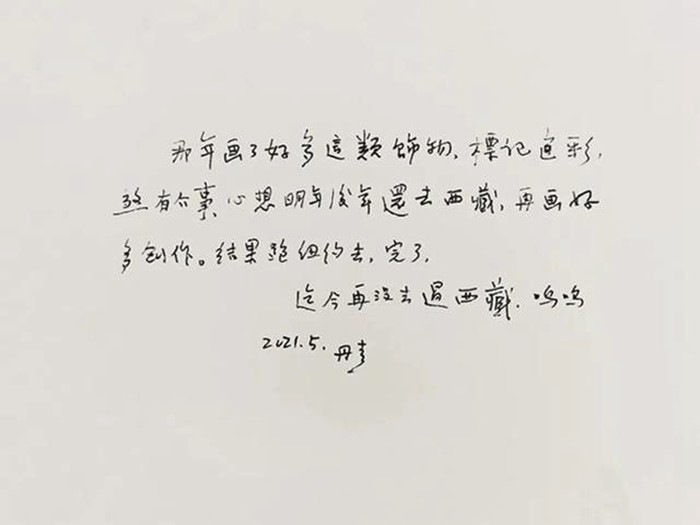 那年画了好多這類飾物、標记色彩,
煞有介事、心想明年后年還去西藏,再画好
多创作。结果跑纽约去,完了,
迄今再没去過西藏.呜呜
2021.5.丹青